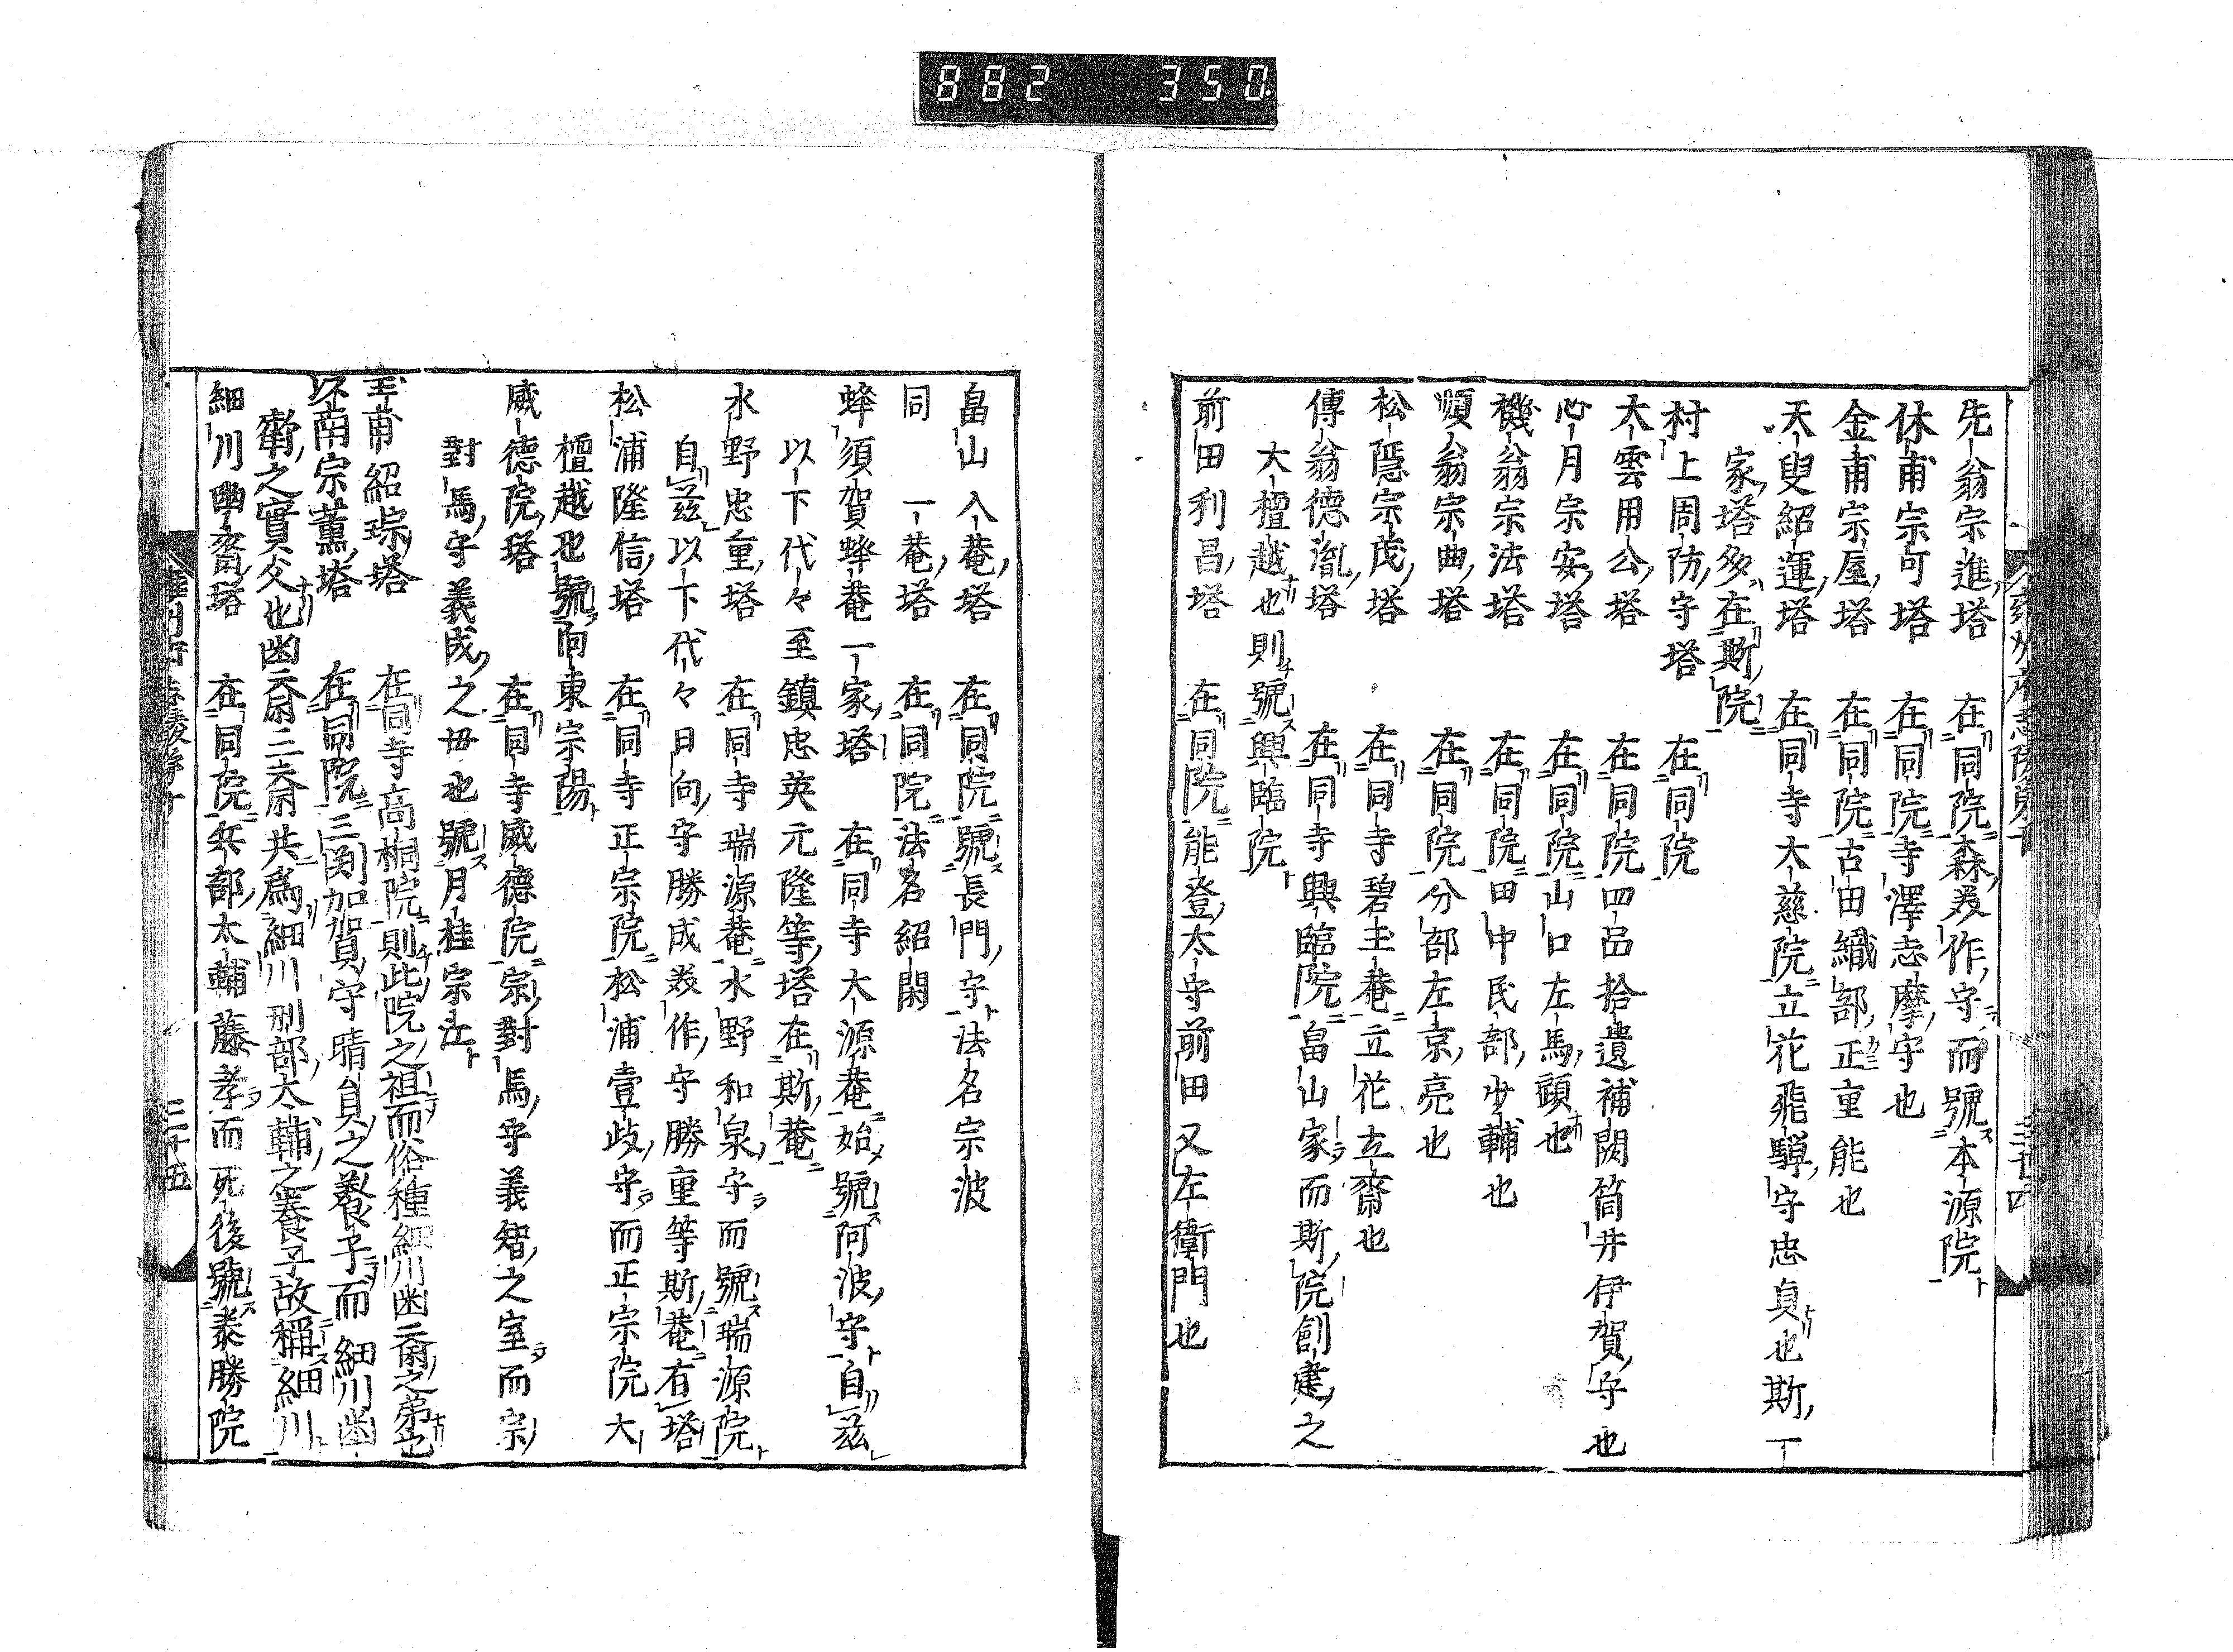 882 350
先翁宗進塔 在同院森美作守而號本源院
休甫宗可塔 在同院寺澤志摩守也
金甫宗屋塔 在同院古田織部正重能也
天叟紹運塔 在同寺大慈院立花飛騨守忠貞也斯一
家塔多在斯院
村上周防守塔 在同院
大雲用公塔 在同院四品拾遺補闕筒井伊賀守也
心月宗安塔 在同院山口左馬頭也
機翁宗法塔 在同院田中民部少輔也
順翁宗曲塔 在同院分部左京亮也
松隱宗茂塔 在同寺碧玉菴立花立齋也
傳翁德胤塔 在同寺興臨院畠山家而斯院創建之
大檀越也則號興臨院
前田利昌塔 在同院能登太守前田又左衛門也
三十四
畠山入菴塔 在同院號長門守法名宗波
同 一菴塔 在同院法名紹閑
蜂須賀蜂菴一家塔 在同寺大源菴始號阿波守自茲
以下代々至鎮忠英元隆等塔在斯菴
水野忠重塔 在同寺瑞源菴水野和泉守而號瑞源院
自茲以下代々日向守勝成美作守勝重等斯菴有塔
松浦隆信塔 在同寺正宗院松浦壹岐守而正宗院大
檀越也號向東宗陽
威德院塔 在同寺威德院宗對馬守義智之室而宗
對馬守義成之毋也號月桂宗江
玉甫紹琮塔 在同寺高桐院則此院之祖而俗種細川幽齋之弟也
以南宗薰塔 在同院三渕加賀守晴員之養子而細川幽
齋之實父也幽齋三齋共爲細川刑部大輔之養子故稱細川
細川幽齋塔 在同院兵部太輔藤孝而死後號泰勝院
三十五